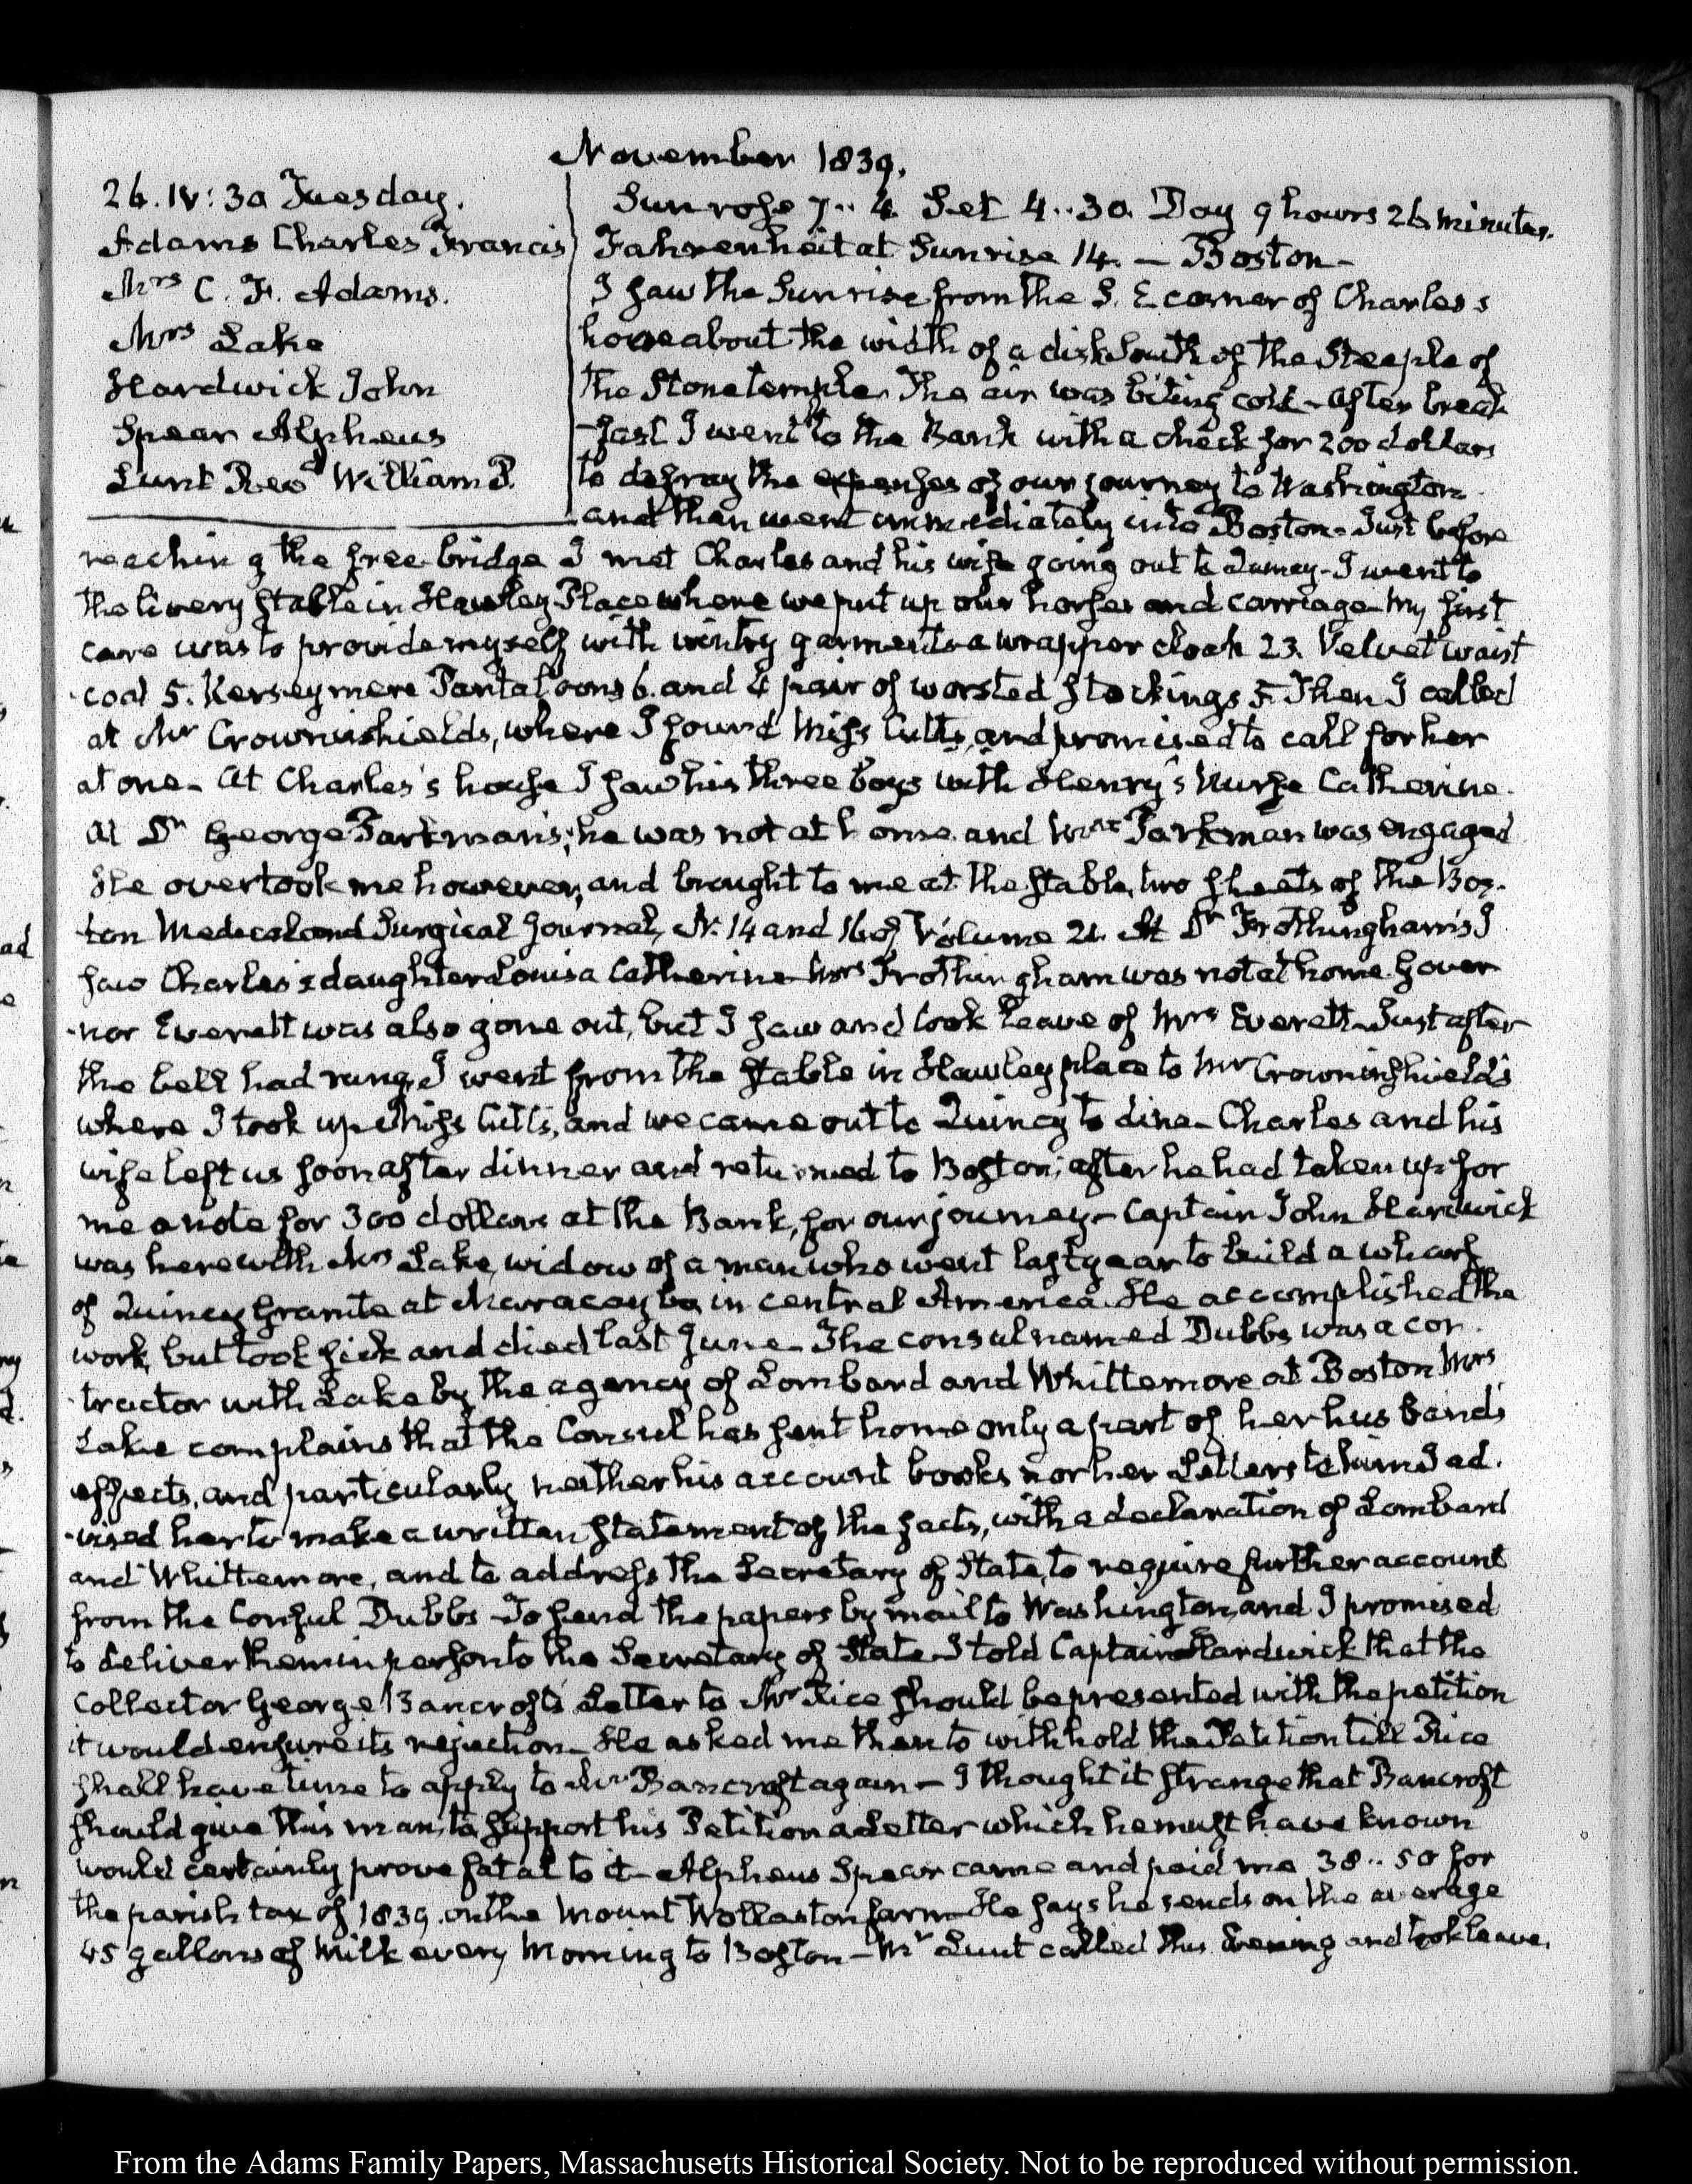 November 1839.
26. IV: 30 Tuesday.
Adams Charles Francis
Mrs C. F. Adams.
Mrs Lake
Hardwick John
Spear Alpheus
Lunt Revd William P.
Sun rose 7..4. Set 4..30. Day 9 hours 26 minutes.
Fahrenheit at Sunrise 14. — Boston —
I saw the Sun rise from the S. E corner of Charles s
house about the width of a disk South of the Steeple of
the Stone temple. The air was biting cold — after break
-fast I went to the Bank with a check for 200 dollars
to defray the expenses of our journey to Washington
and then went immediately into Boston — Just before
reaching the free-bridge I met Charles and his wife going out to Quincy — I went to
the livery stable in Hawley Place where we put up our horses and carriage — My first
care was to provide myself with wintry garments — a wrapper cloak 23. Velvet waist
-coat 5. Kerseymere Pantaloons 6. and 4 pair of worsted stockings 5. Then I called
at Mr Crowninshields, where I found Miss Cutts, and promised to call for her
at one — At Charles's house I saw his three boys with Henry's Nurse Catherine.
At Dr George Parkman's; he was not at home and Mrs Parkman was engaged
He overtook me however, and brought to me at the stable, two sheets of the Bos-
-ton Medical and Surgical Journal, N. 14 and 16 of Volume 21. At Dr Frothingham's I
saw Charles's daughter Louisa Catherine — Mrs Frothingham was not at home. Gover
-nor Everett was also gone out, but I saw and took leave of Mrs Everett — Just after
the bell had rung, I went from the stable in Hawley place to Mr Crowninshield's
where I took up Miss Cutts, and we came out to Quincy to dine — Charles and his
wife left us soon after dinner and returned to Boston, after he had taken up for
me a note for 300 dollars at the Bank, for our journey — Captain John Hardwick
was here with Mrs Lake, widow of a man who went last year to build a wharf
of Quincy Granite at Maracaybo in central America. He accomplished the
work, but took sick and died last June — The consul named Dubbs was a con-
-tractor with Lake by the agency of Lombard and Whittemore at Boston Mrs
Lake complains that the Consul has sent home only a part of her husband's
effects, and particularly neither his account books nor her Letters to him. I ad-
-vised her to make a written statement of the facts, with a declaration of Lombard
and Whittemore, and to address the Secretary of State, to require further account
from the Consul Dubbs — To send the papers by mail to Washington, and I promised
to deliver them in person to the Secretary of State — I told Captain Hardwick that the
Collector George Bancroft's Letter to Mr Rice should be presented with the petition
it would ensure its rejection — He asked me then to withhold the Petition till Rice
shall have time to apply to Mr Bancroft again — I thought it strange that Bancroft
should give this man, to support his Petition a Letter which he must have known
would certainly prove fatal to it — Alpheus Spear came and paid me 38..50 for
the parish tax of 1839. on the Mount Wollaston farm — He says he sends on the average
45 gallons of Milk every Morning to Boston — Mr Lunt called this Evening and took leave.
From the Adams Family Papers, Massachusetts Historical Society. Not to be reproduced without permission.